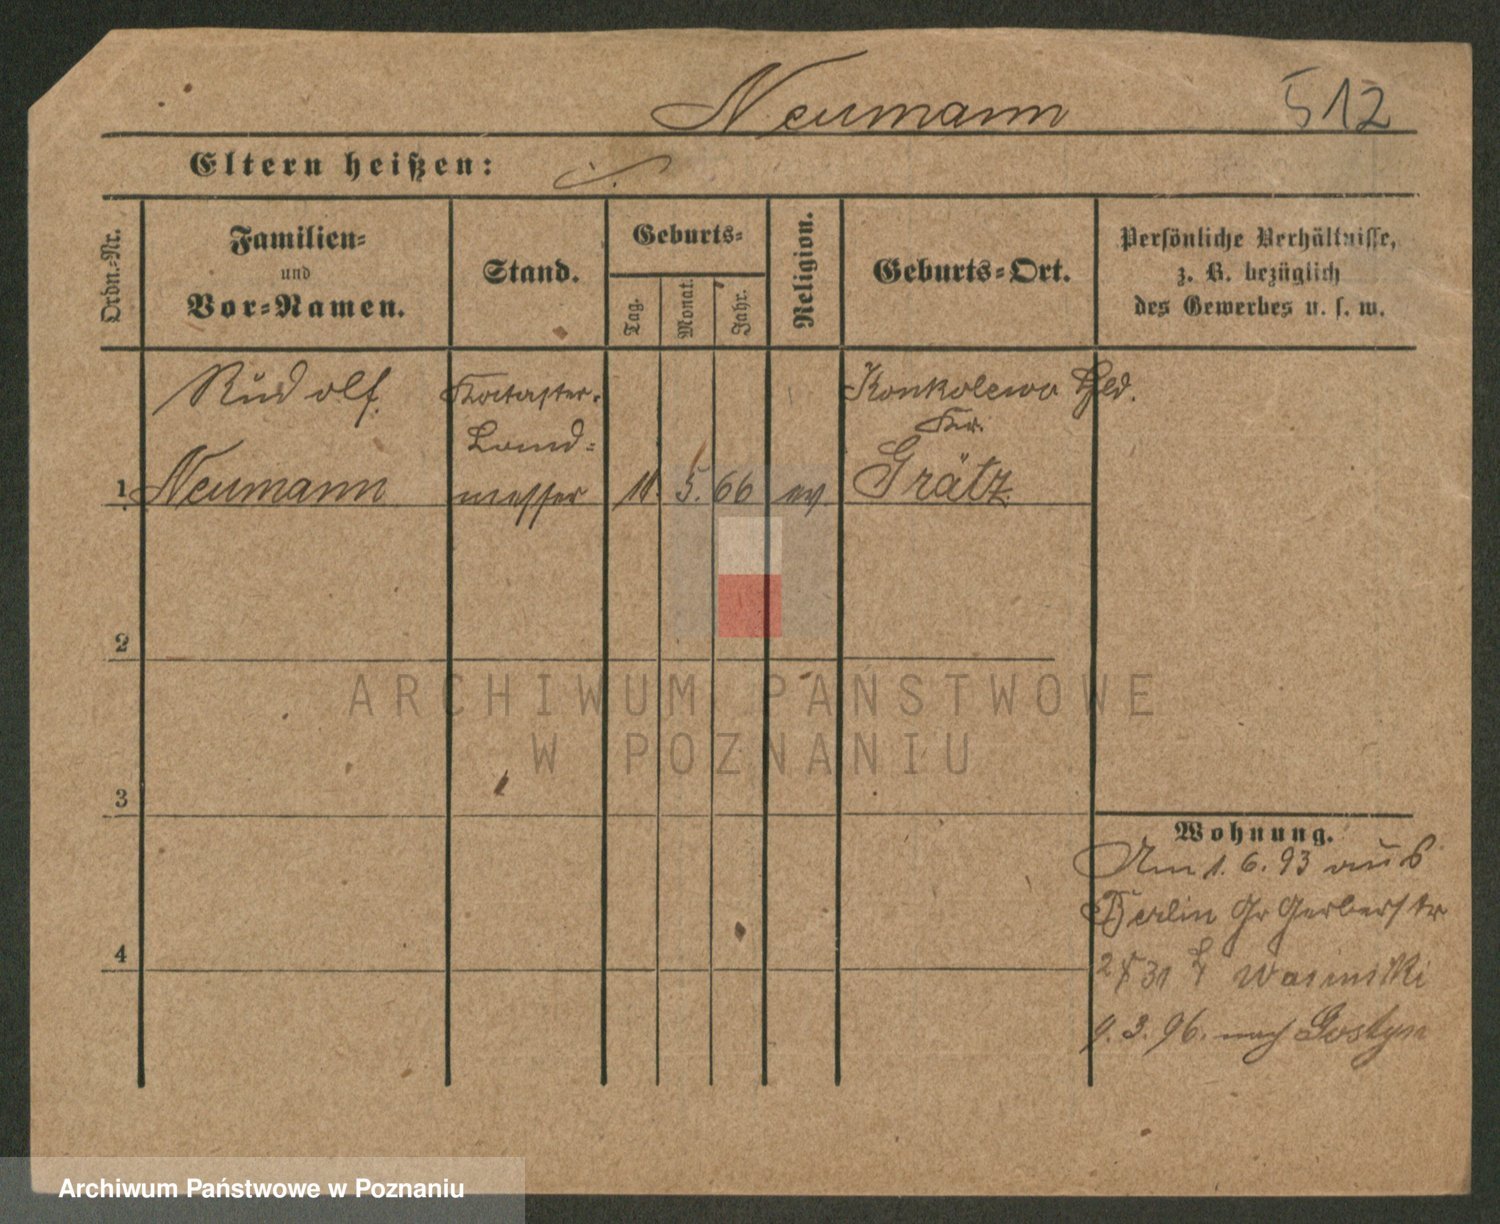 Neumann 512
Eltern heißen:
Ordn.-Nr.
Familien-
und
Vor-Namen.
Stand.
Geburts-
Tag.
Monat.
Jahr.
Religion.
Geburts-Ort.
Persönliche Verhältnisse,
z. B. bezüglich
des Gewerbes u. s. w.
Rudolf Kataster- Konkolewo Hld.
Land- Kr.
1 Neumann messer 11. 5. 66 ev. Grätz
2
3
4
Wohnung.
Am 1. 6. 93 aus
Berlin Gr Gerberstr
31 Wasinski
9. 3. 96. nach Gostyn
ARCHIWUM PAŃSTWOWE
W POZNANIU
Archiwum Państwowe w Poznaniu